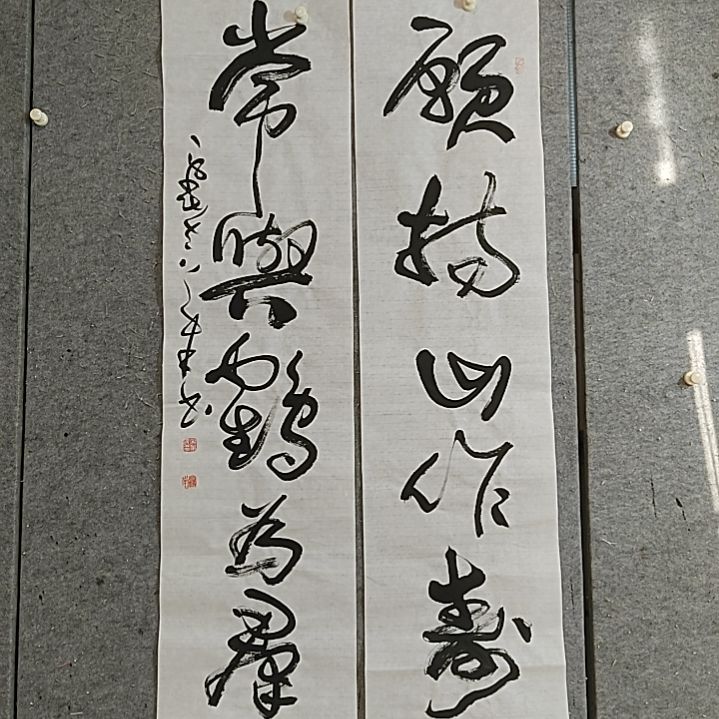 願持山作壽
常與鶴為群